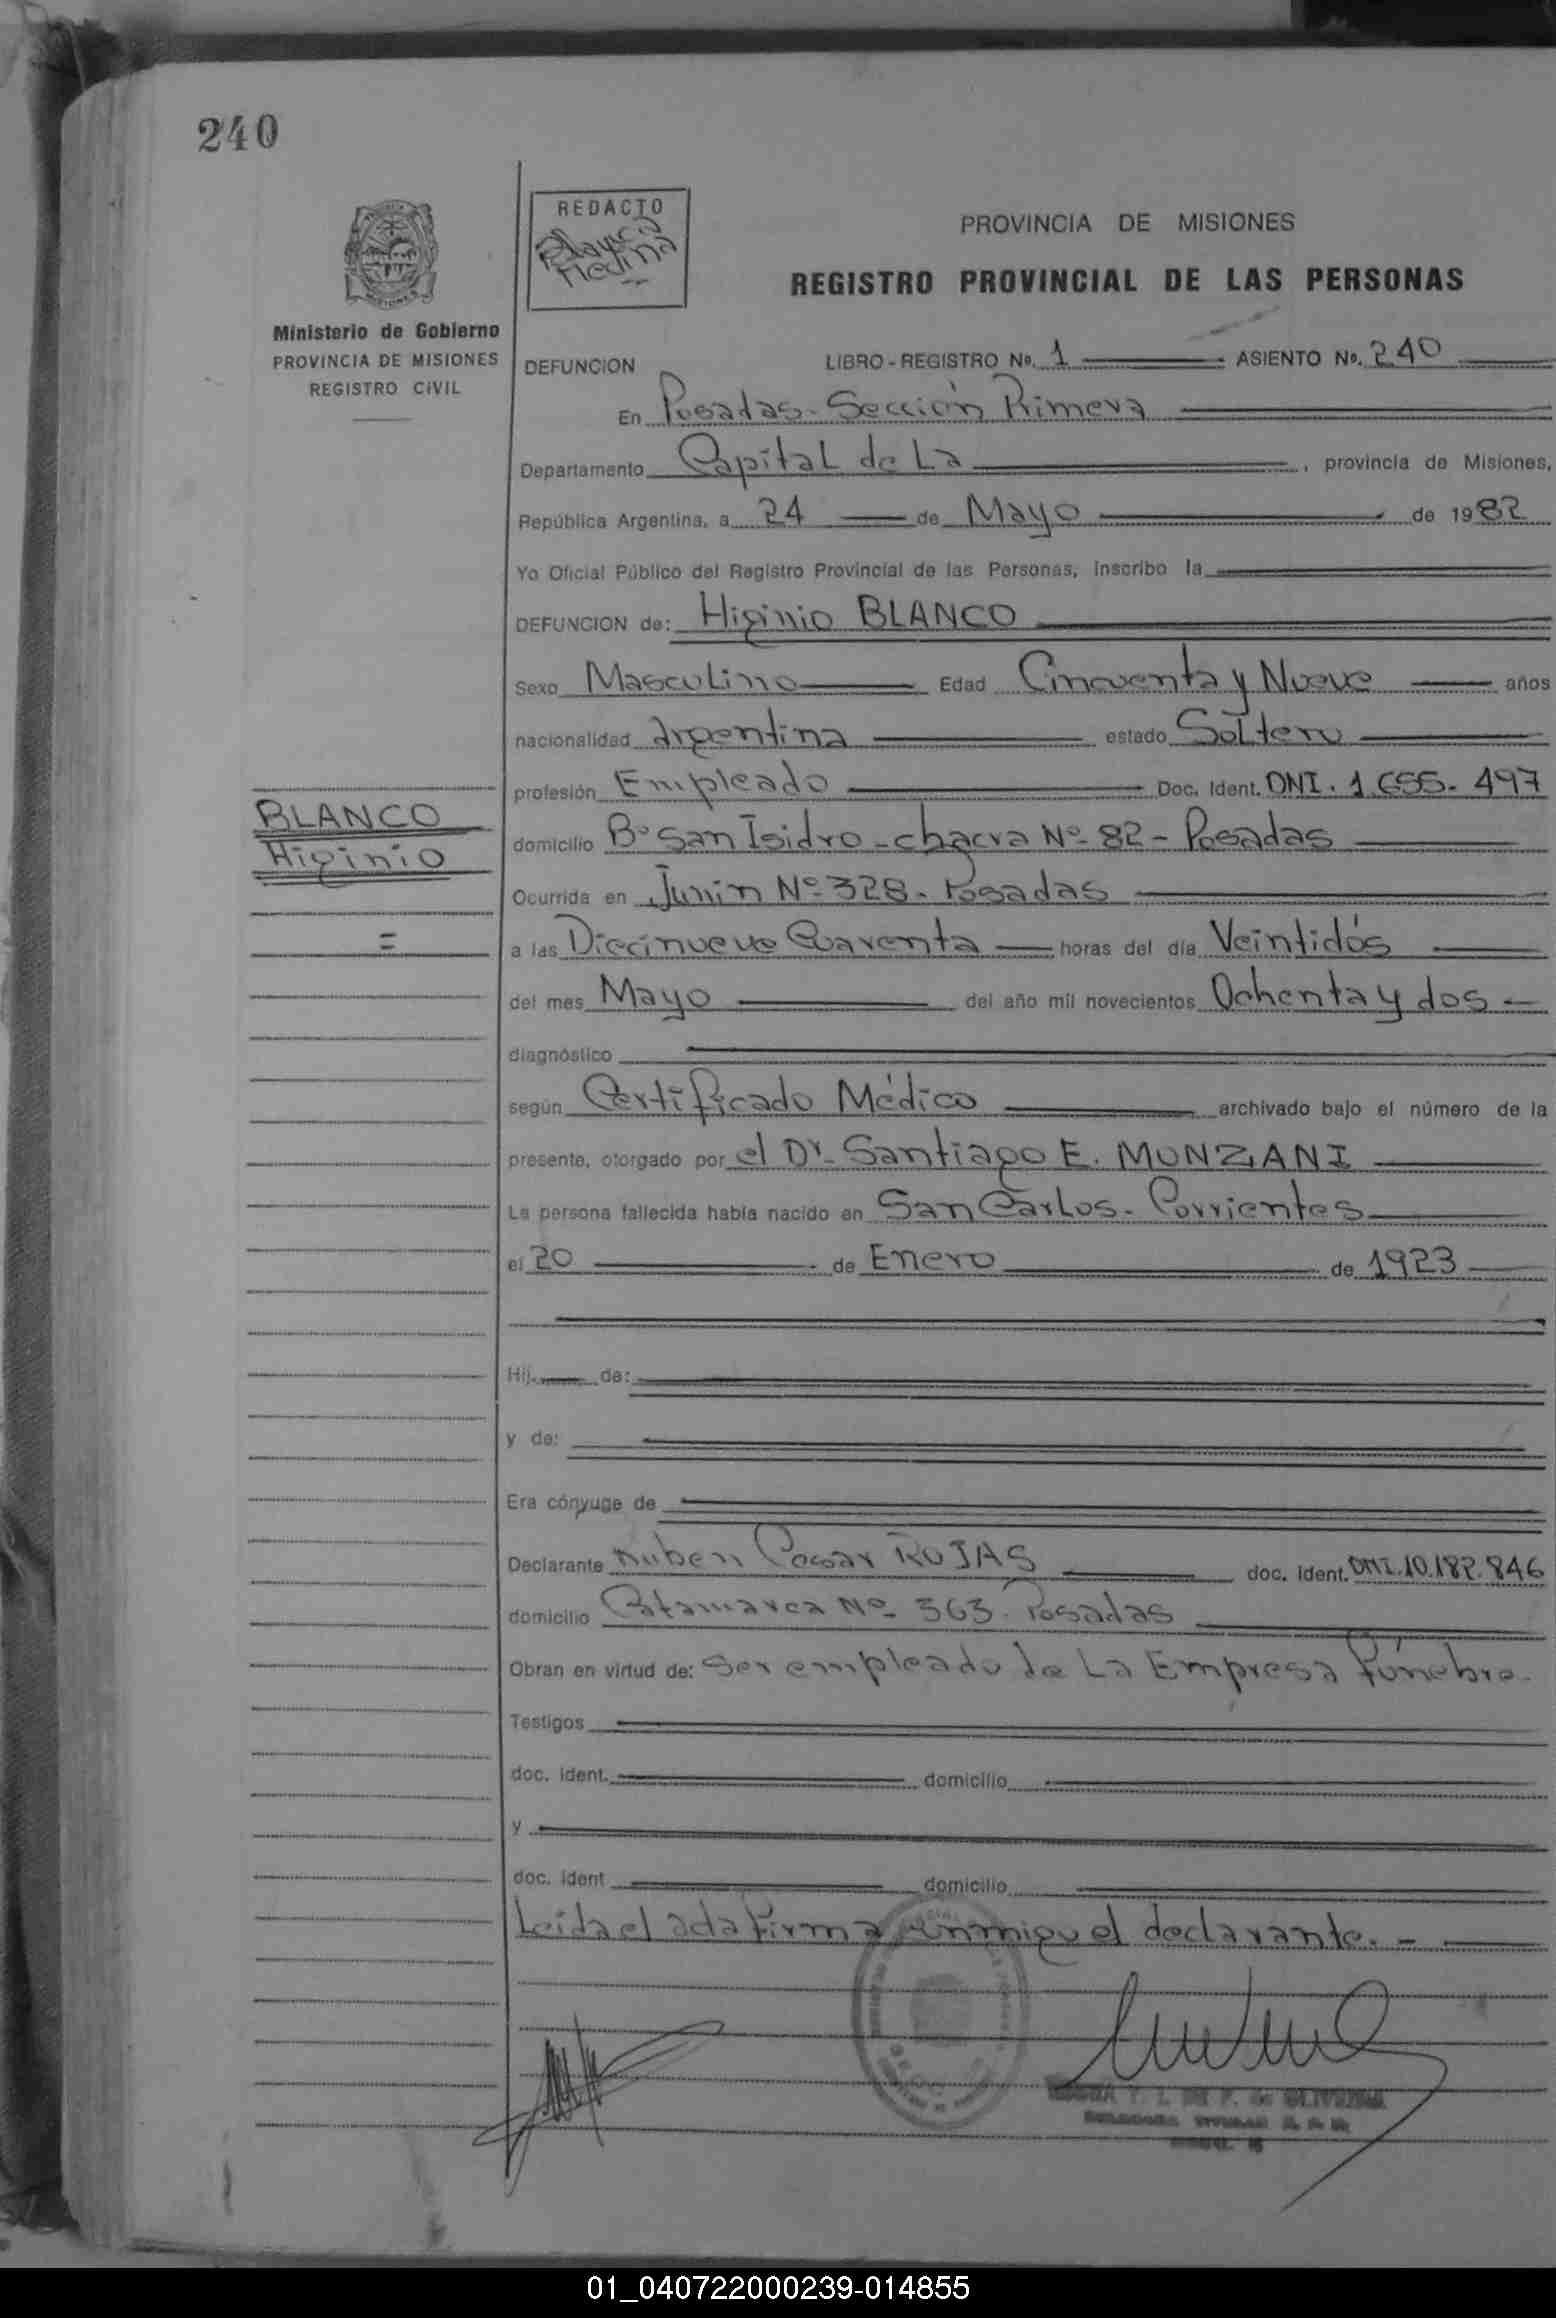 240
REDACTO
Medina
PROVINCIA DE MISIONES
REGISTRO PROVINCIAL DE LAS PERSONAS
MISIONES
Ministerio de Gobierno
PROVINCIA DE MISIONES
REGISTRO CIVIL
DEFUNCION LIBRO - REGISTRO No. 1 ASIENTO No. 240
En Posadas - Sección Primera
Departamento Capital de La, provincia de Misiones,
República Argentina, a 24 de Mayo de 1982
Yo Oficial Público del Registro Provincial de las Personas, inscribo la
DEFUNCION de: Higinio BLANCO
Sexo Masculino Edad Cincuenta y Nueve años
nacionalidad Argentina estado Soltero
profesión Empleado Doc. Ident. DNI. 1.655.497
BLANCO
Higinio
=
domicilio Bº San Isidro - chacra Nº 82 - Posadas
Ocurrida en Junin Nº 328 - Posadas
a las Diecinueve Cuarenta horas del día Veintidós
del mes Mayo del año mil novecientos Ochenta y dos -
diagnóstico
según Certificado Médico archivado bajo el número de la
presente, otorgado por el Dr. Santiago E. MUNZANI
La persona fallecida había nacido en San Carlos - Corrientes
el 20 de Enero de 1923
Hij de:
y de:
Era cónyuge de
Declarante Ruben Cesar ROJAS doc. ident. DNI. 10.182.846
domicilio Catamarca Nº 363 - Posadas
Obran en virtud de: Ser empleado de La Empresa fúnebre.
Testigos
doc. ident. domicilio
y
doc. ident domicilio
Leida el acta firma conmigo el declarante. -
de OLIVEIRA
01_040722000239-014855